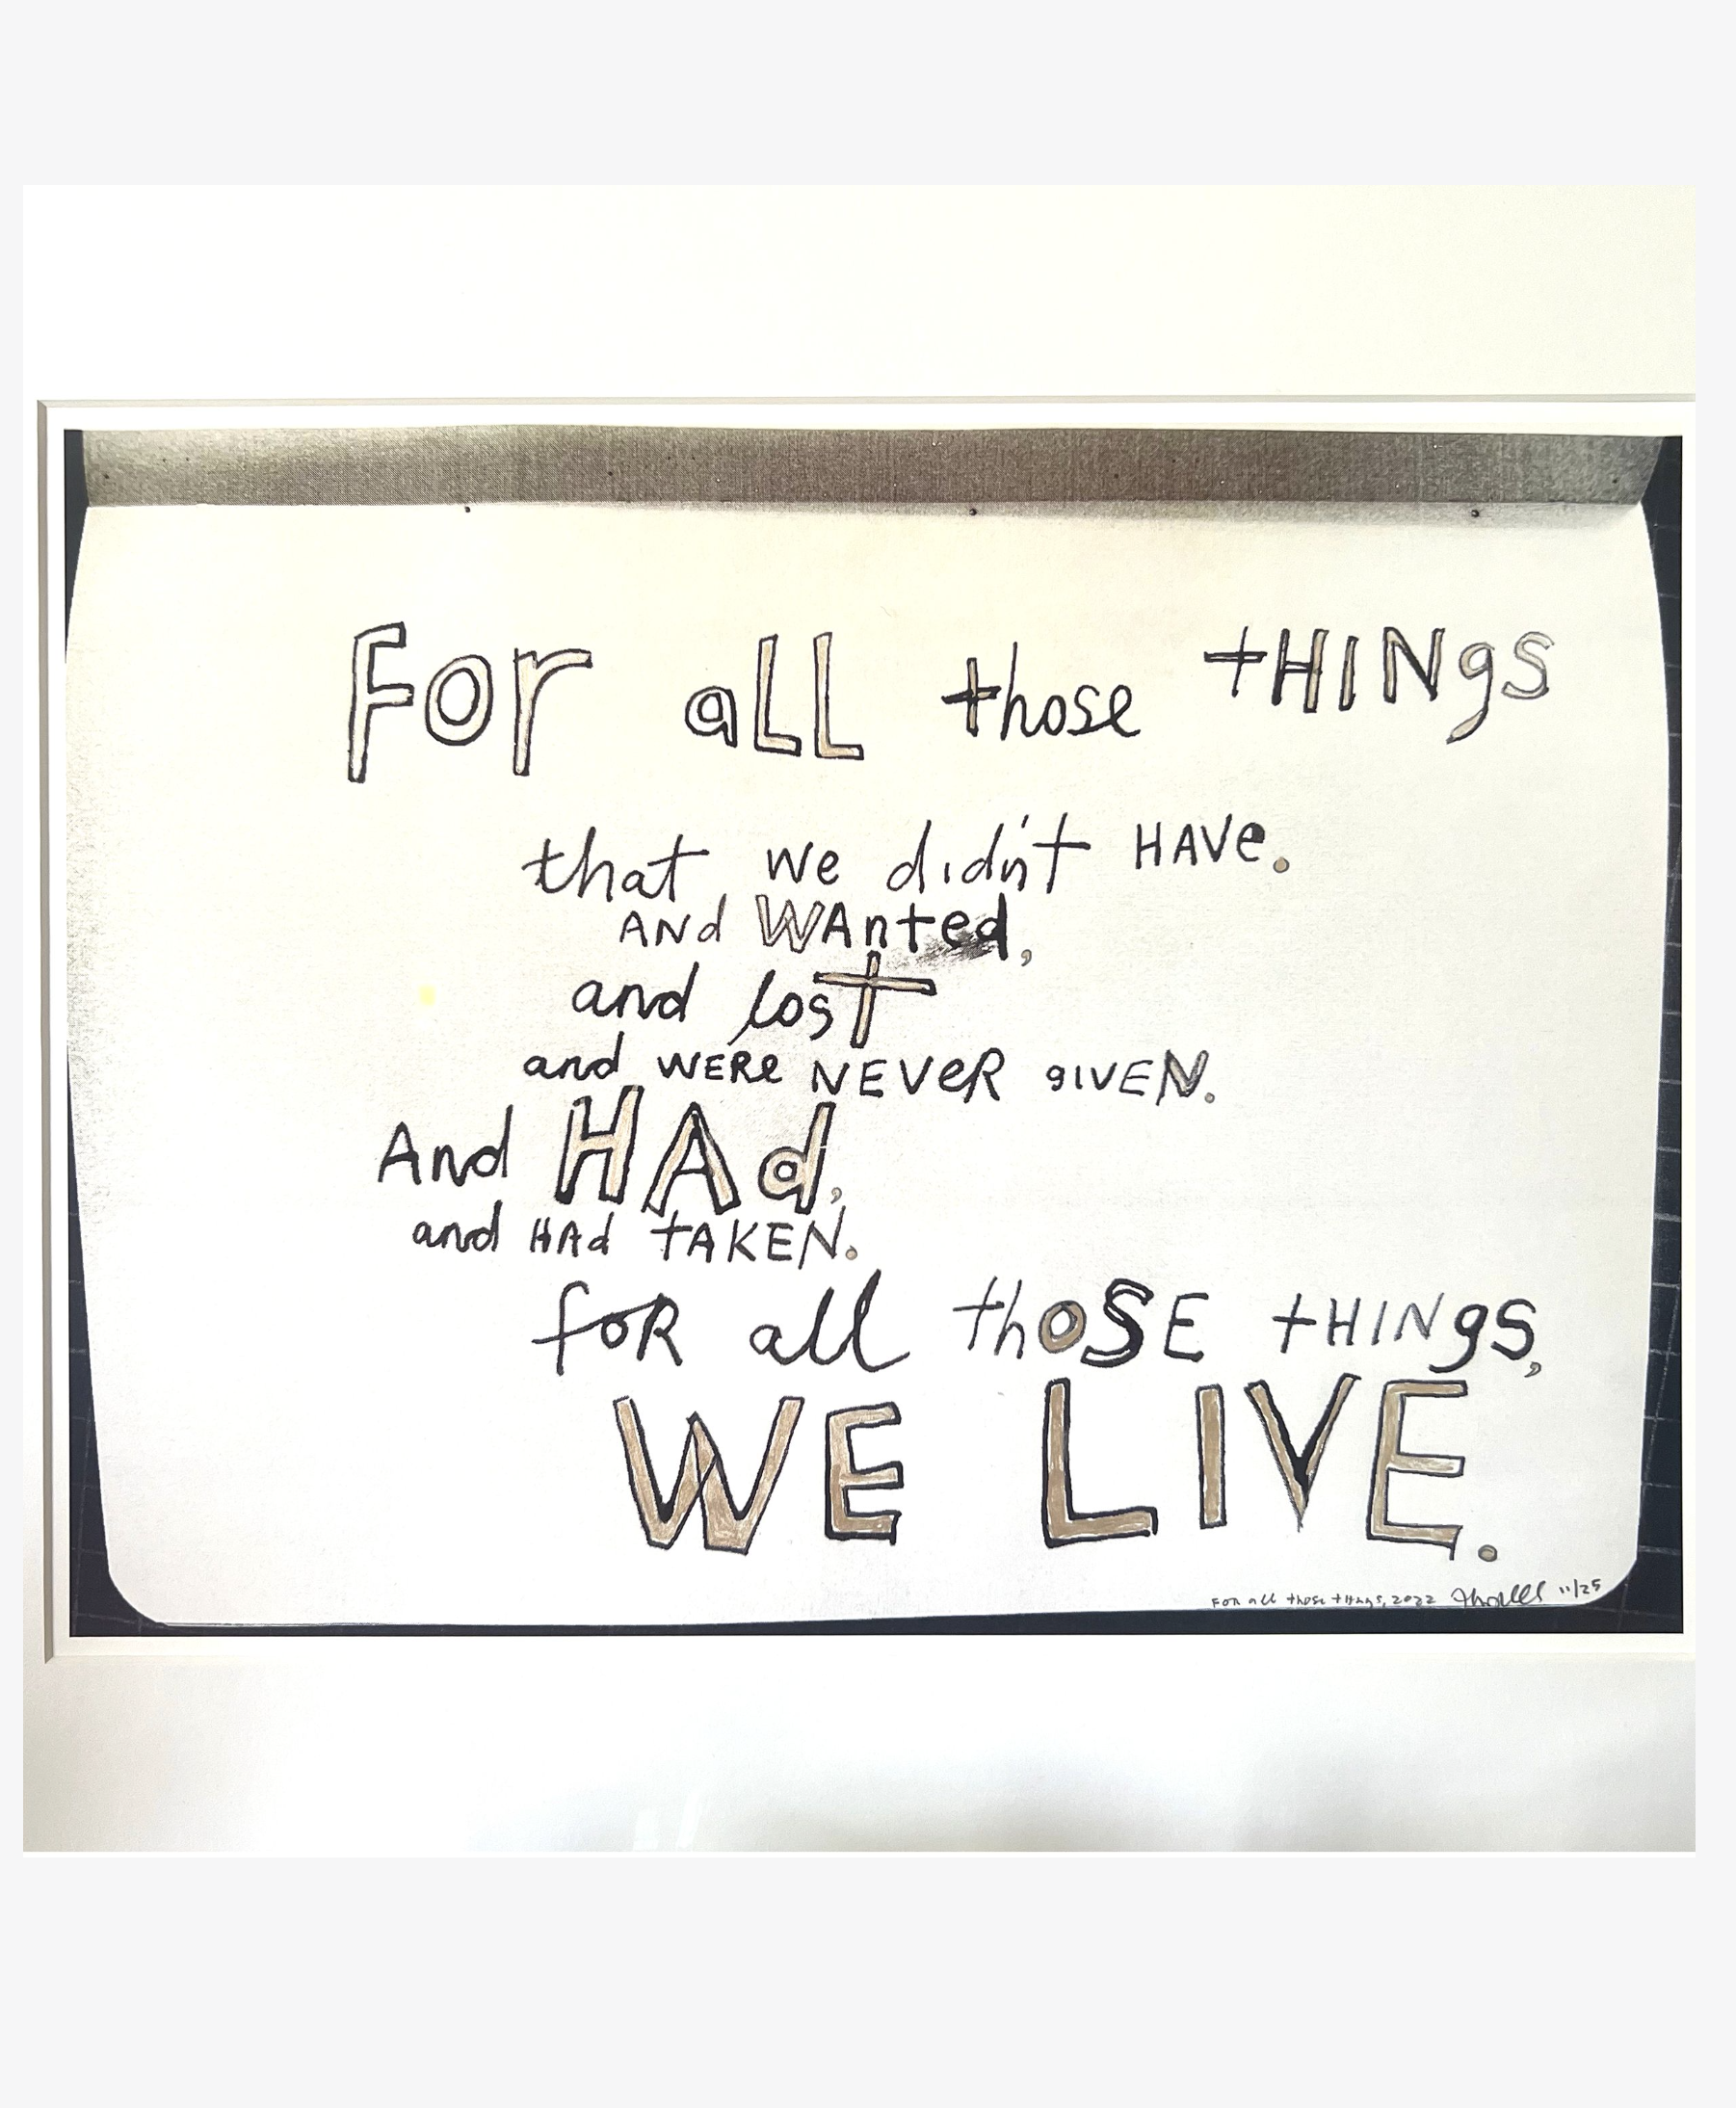 For aLL those tHINgs
that we didn't HAVe.
ANd WAnted,
and losT
and wERe NEVeR gIVEN.
And HAd,
and HAd tAKEN.
foR all thOSE tHINgs,
WE LIVE.
FOR all those things, 2022 11/25